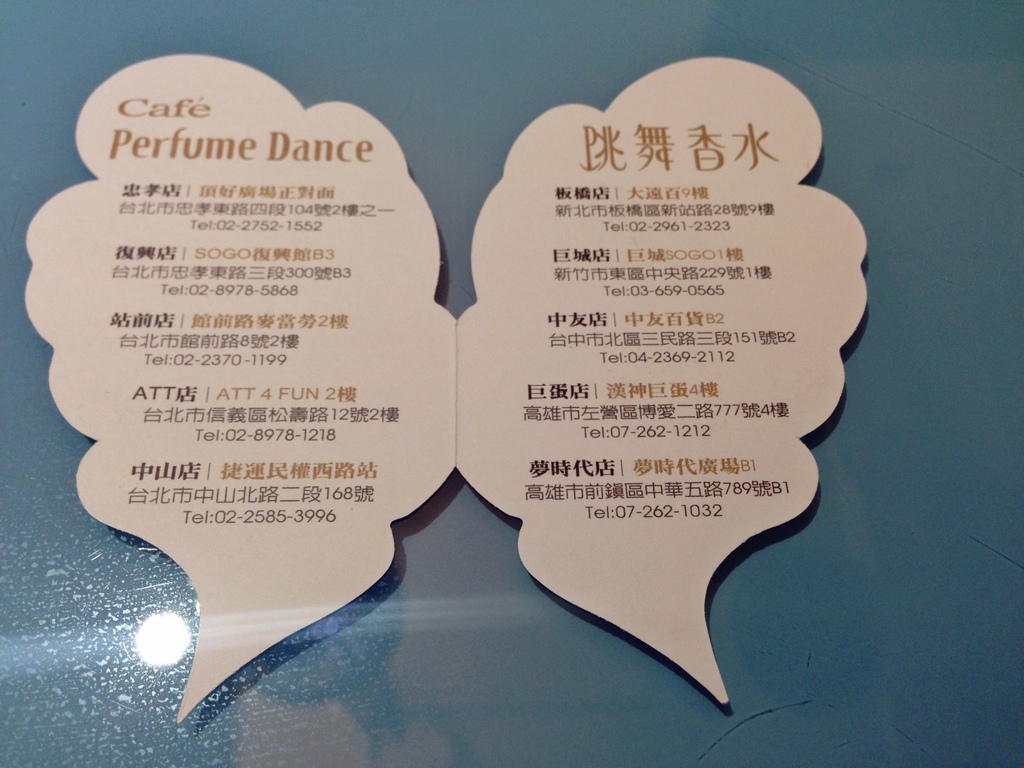 Café
Perfume Dance
忠孝店｜頂好廣場正對面
台北市忠孝東路四段104號2樓之一
Tel:02-2752-1552
復興店｜SOGO復興館B3
台北市忠孝東路三段300號B3
Tel:02-8978-5868
站前店｜館前路麥當勞2樓
台北市館前路8號2樓
Tel:02-2370-1199
ATT店｜ATT 4 FUN 2樓
台北市信義區松壽路12號2樓
Tel:02-8978-1218
中山店｜捷運民權西路站
台北市中山北路二段168號
Tel:02-2585-3996
跳舞香水
板橋店｜大遠百9樓
新北市板橋區新站路28號9樓
Tel:02-2961-2323
巨城店｜巨城SOGO1樓
新竹市東區中央路229號1樓
Tel:03-659-0565
中友店｜中友百貨B2
台中市北區三民路三段151號B2
Tel:04-2369-2112
巨蛋店｜漢神巨蛋4樓
高雄市左營區博愛二路777號4樓
Tel:07-262-1212
夢時代店｜夢時代廣場B1
高雄市前鎮區中華五路789號B1
Tel:07-262-1032